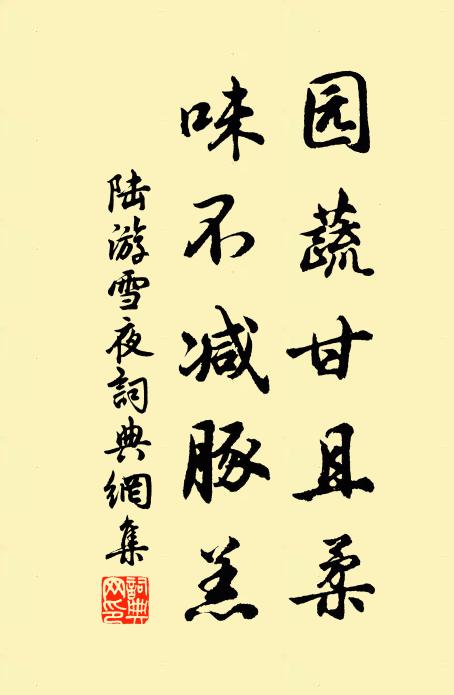 园蔬甘且柔
味不减豚羔
陆游雪夜詞典網集
詞典
网印